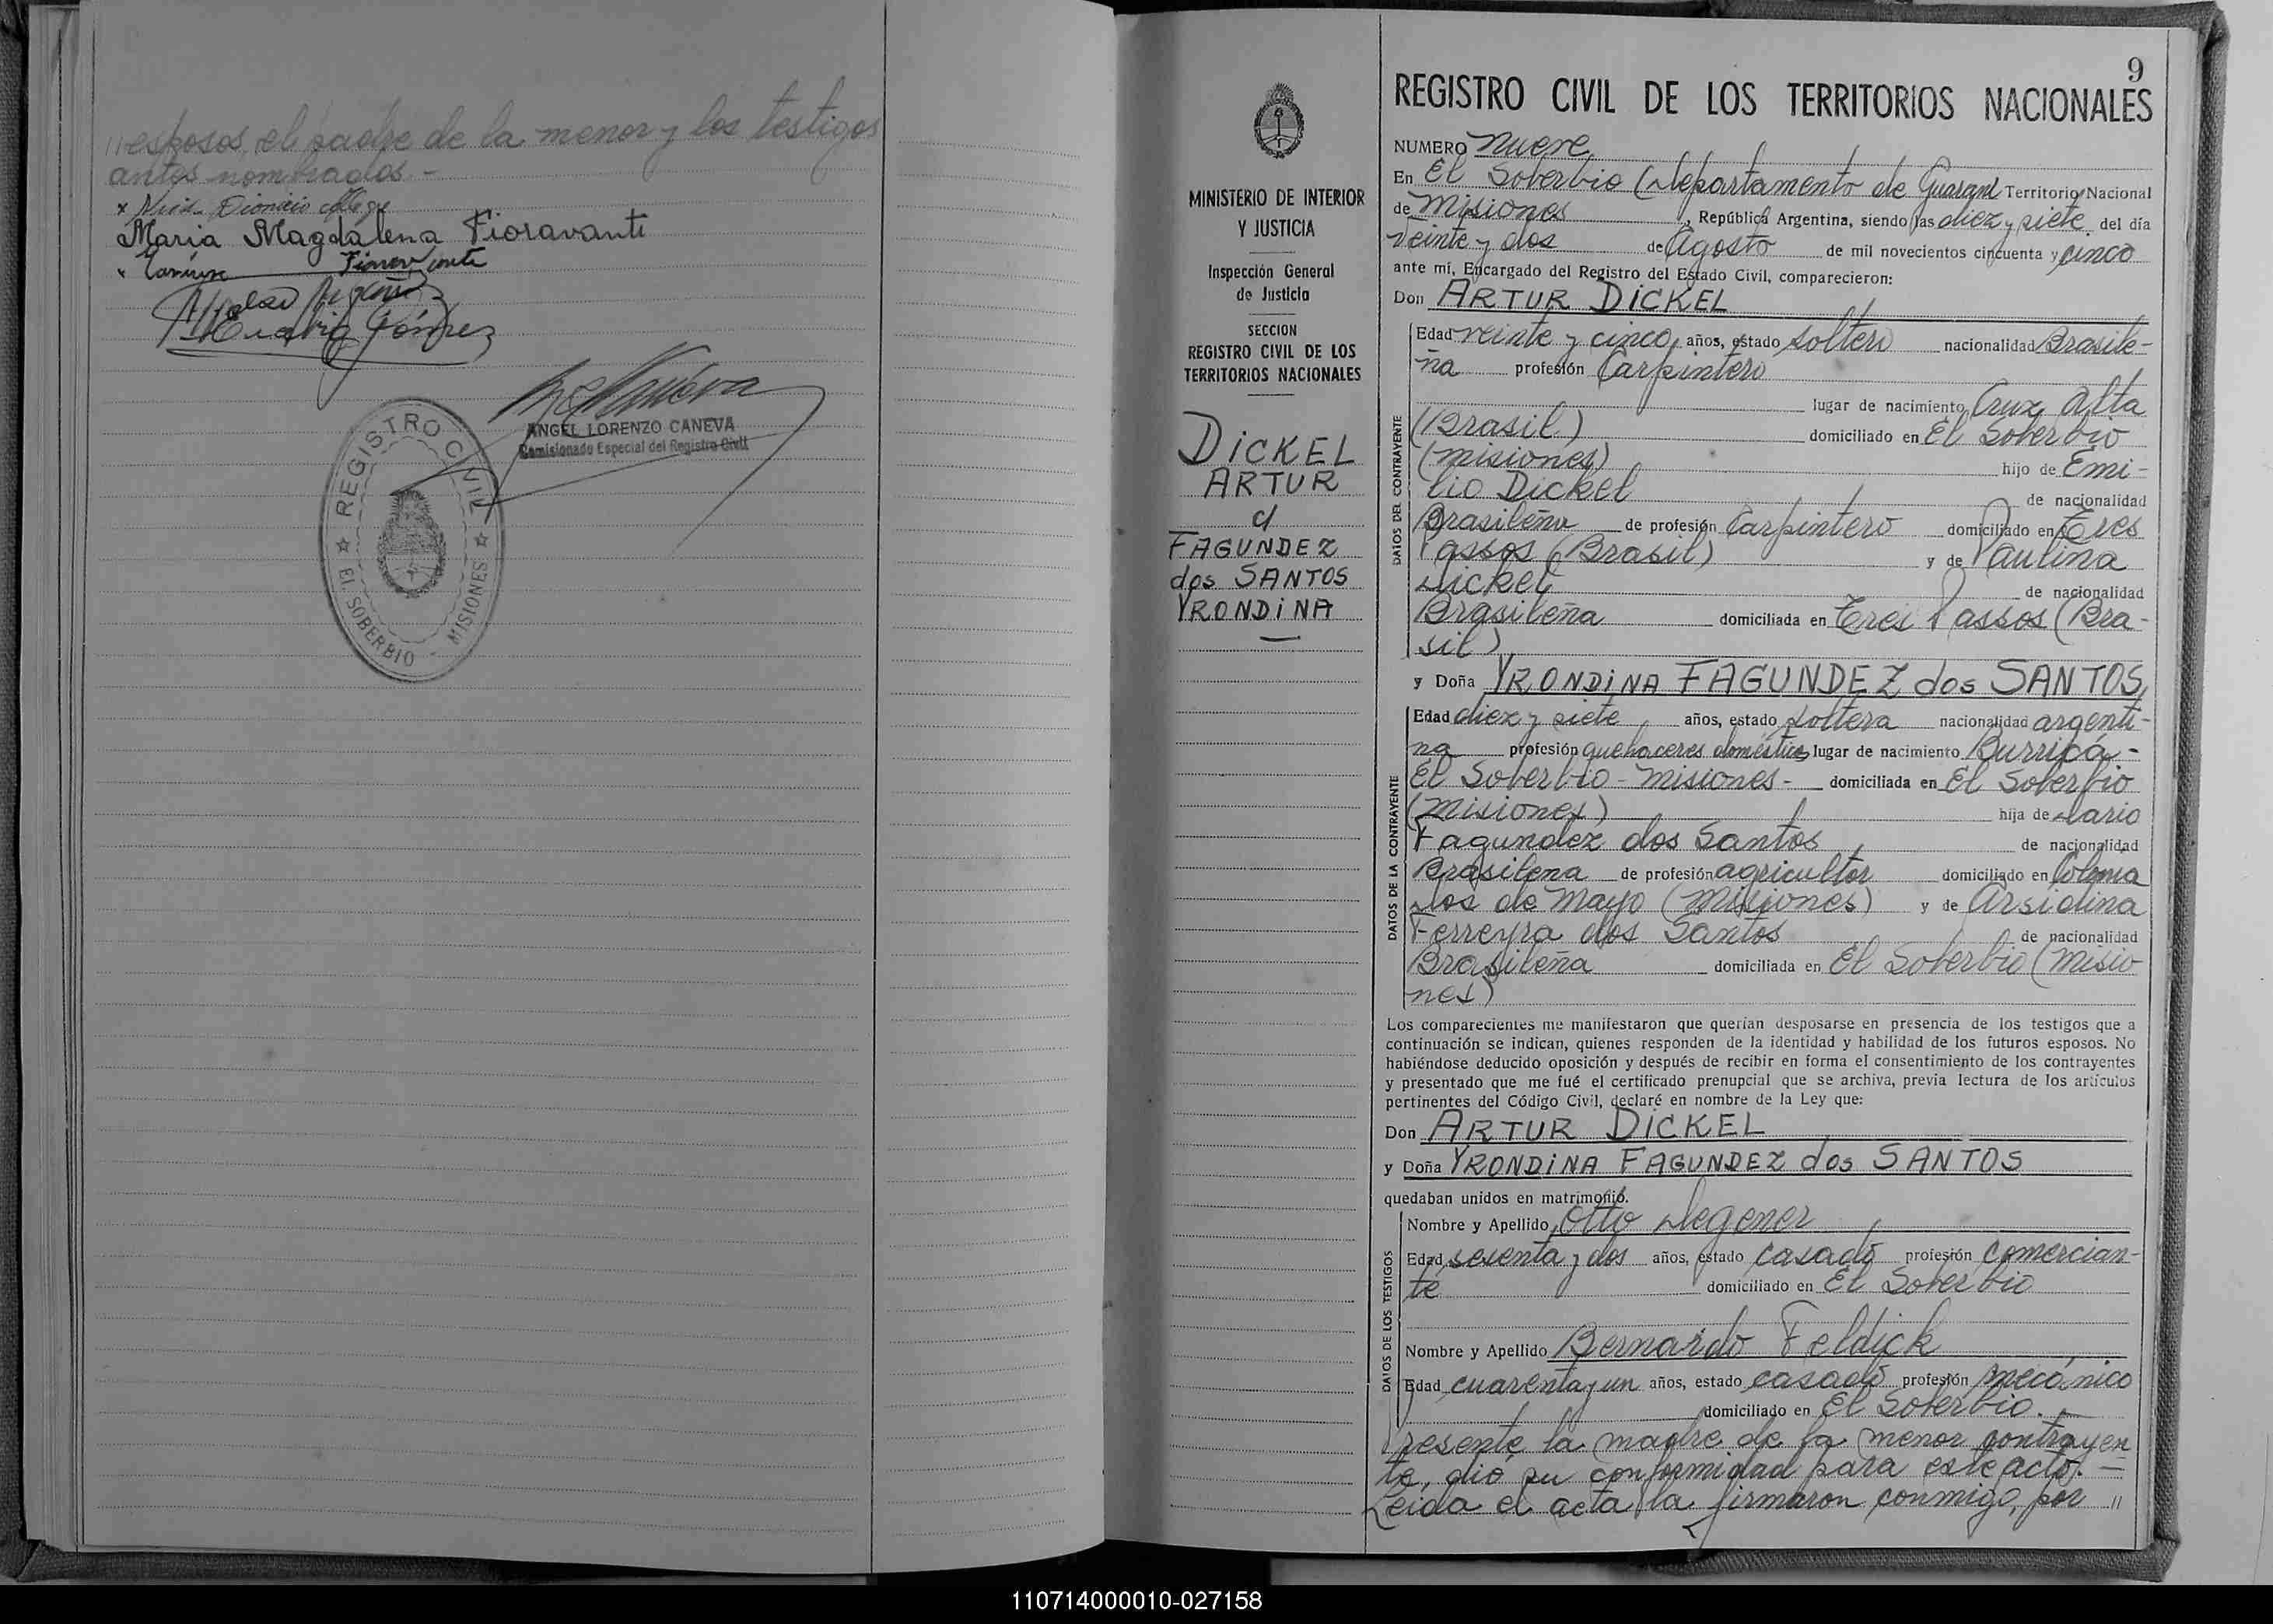 "esposos, el padre de la menor y los testigos
antes nombrados.-
x Dionicio
Maria Magdalena Fioravanti
Fioravanti
Gómez
ANGEL LORENZO CANEVA
Comisionado Especial del Registro Civil
REGISTRO CIVIL
EL SOBERBIO - MISIONES
MINISTERIO DE INTERIOR
Y JUSTICIA
Inspección General
de Justicia
SECCION
REGISTRO CIVIL DE LOS
TERRITORIOS NACIONALES
DICKEL
ARTUR
c/
FAGUNDEZ
dos SANTOS
YRONDINA
9
REGISTRO CIVIL DE LOS TERRITORIOS NACIONALES
NUMERO Nueve
En El Soberbio (Departamento de Guaraní Territorio Nacional
de Misiones, República Argentina, siendo las diez y siete del día
veinte y dos de Agosto de mil novecientos cincuenta y cinco
ante mí, Encargado del Registro del Estado Civil, comparecieron:
Don ARTUR DICKEL
DATOS DEL CONTRAYENTE
Edad veinte y cinco años, estado soltero nacionalidad Brasile-
ña profesión Carpintero
lugar de nacimiento Cruz Alta
(Brasil) domiciliado en El Soberbio
(Misiones) hijo de Emi-
lio Dickel de nacionalidad
Brasileña de profesión Carpintero domiciliado en Tres
Passos (Brasil) y de Paulina
Dickel de nacionalidad
Brasileña domiciliada en Tres Passos (Bra-
sil)
y Doña YRONDINA FAGUNDEZ dos SANTOS,
DATOS DE LA CONTRAYENTE
Edad diez y siete años, estado soltera nacionalidad argenti-
na profesión quehaceres domésticos lugar de nacimiento Burrica-
El Soberbio - Misiones - domiciliada en El Soberbio
(Misiones) hija de Dario
Fagundez dos Santos de nacionalidad
Brasilena de profesión agricultor domiciliado en Colonia
Dos de Mayo (Misiones) y de Arsidina
Ferreyra dos Santos de nacionalidad
Brasileña domiciliada en El Soberbio (Misio
nes)
Los comparecientes me manifestaron que querían desposarse en presencia de los testigos que a
continuación se indican, quienes responden de la identidad y habilidad de los futuros esposos. No
habiéndose deducido oposición y después de recibir en forma el consentimiento de los contrayentes
y presentado que me fué el certificado prenupcial que se archiva, previa lectura de los artículos
pertinentes del Código Civil, declaré en nombre de la Ley que:
Don ARTUR DICKEL
y Doña YRONDINA FAGUNDEZ dos SANTOS
quedaban unidos en matrimonio.
DATOS DE LOS TESTIGOS
Nombre y Apellido Otto Degener
Edad sesenta y dos años, estado casado profesión comercian-
te domiciliado en El Soberbio
Nombre y Apellido Bernardo Feldick
Edad cuarenta y un años, estado casado profesión mecánico
domiciliado en El Soberbio.
Presente la madre de la menor contrayen
te, dió su conformidad para este acto.=
Leida el acta la firmaron conmigo, por "
110714000010-027158